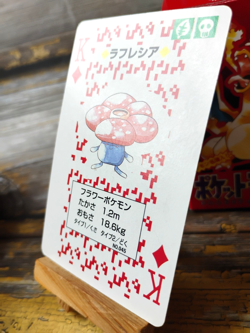 K
ラフレシア
フラワーポケモン
たかさ 1.2m
おもさ 18.6kg
タイプ1/くさ タイプ2/どく
NO.045
K
ポケット